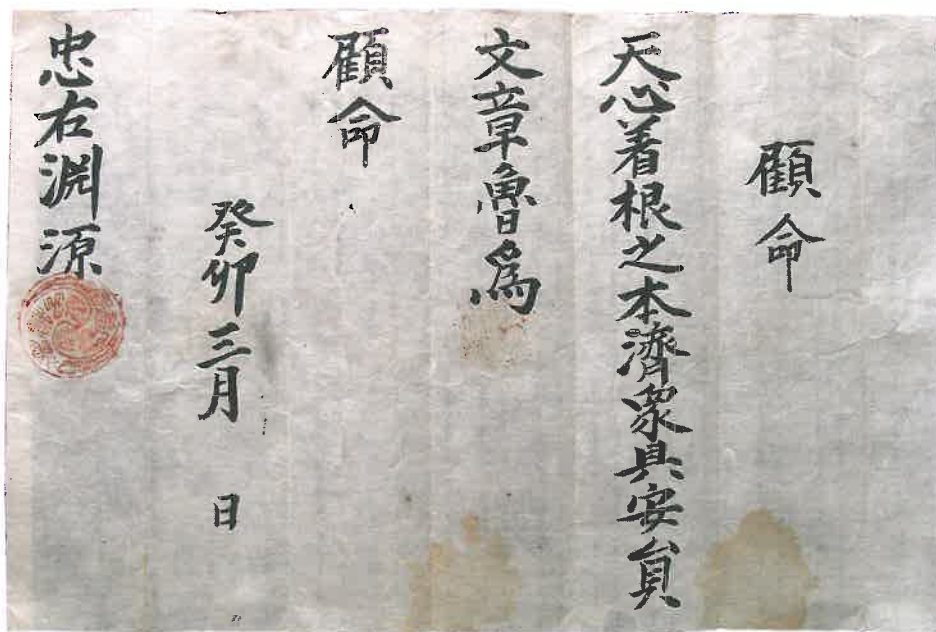 顧命
天心着根之本濟衆具安貟
文章魯爲
顧命
癸卯三月 日
忠右淵源